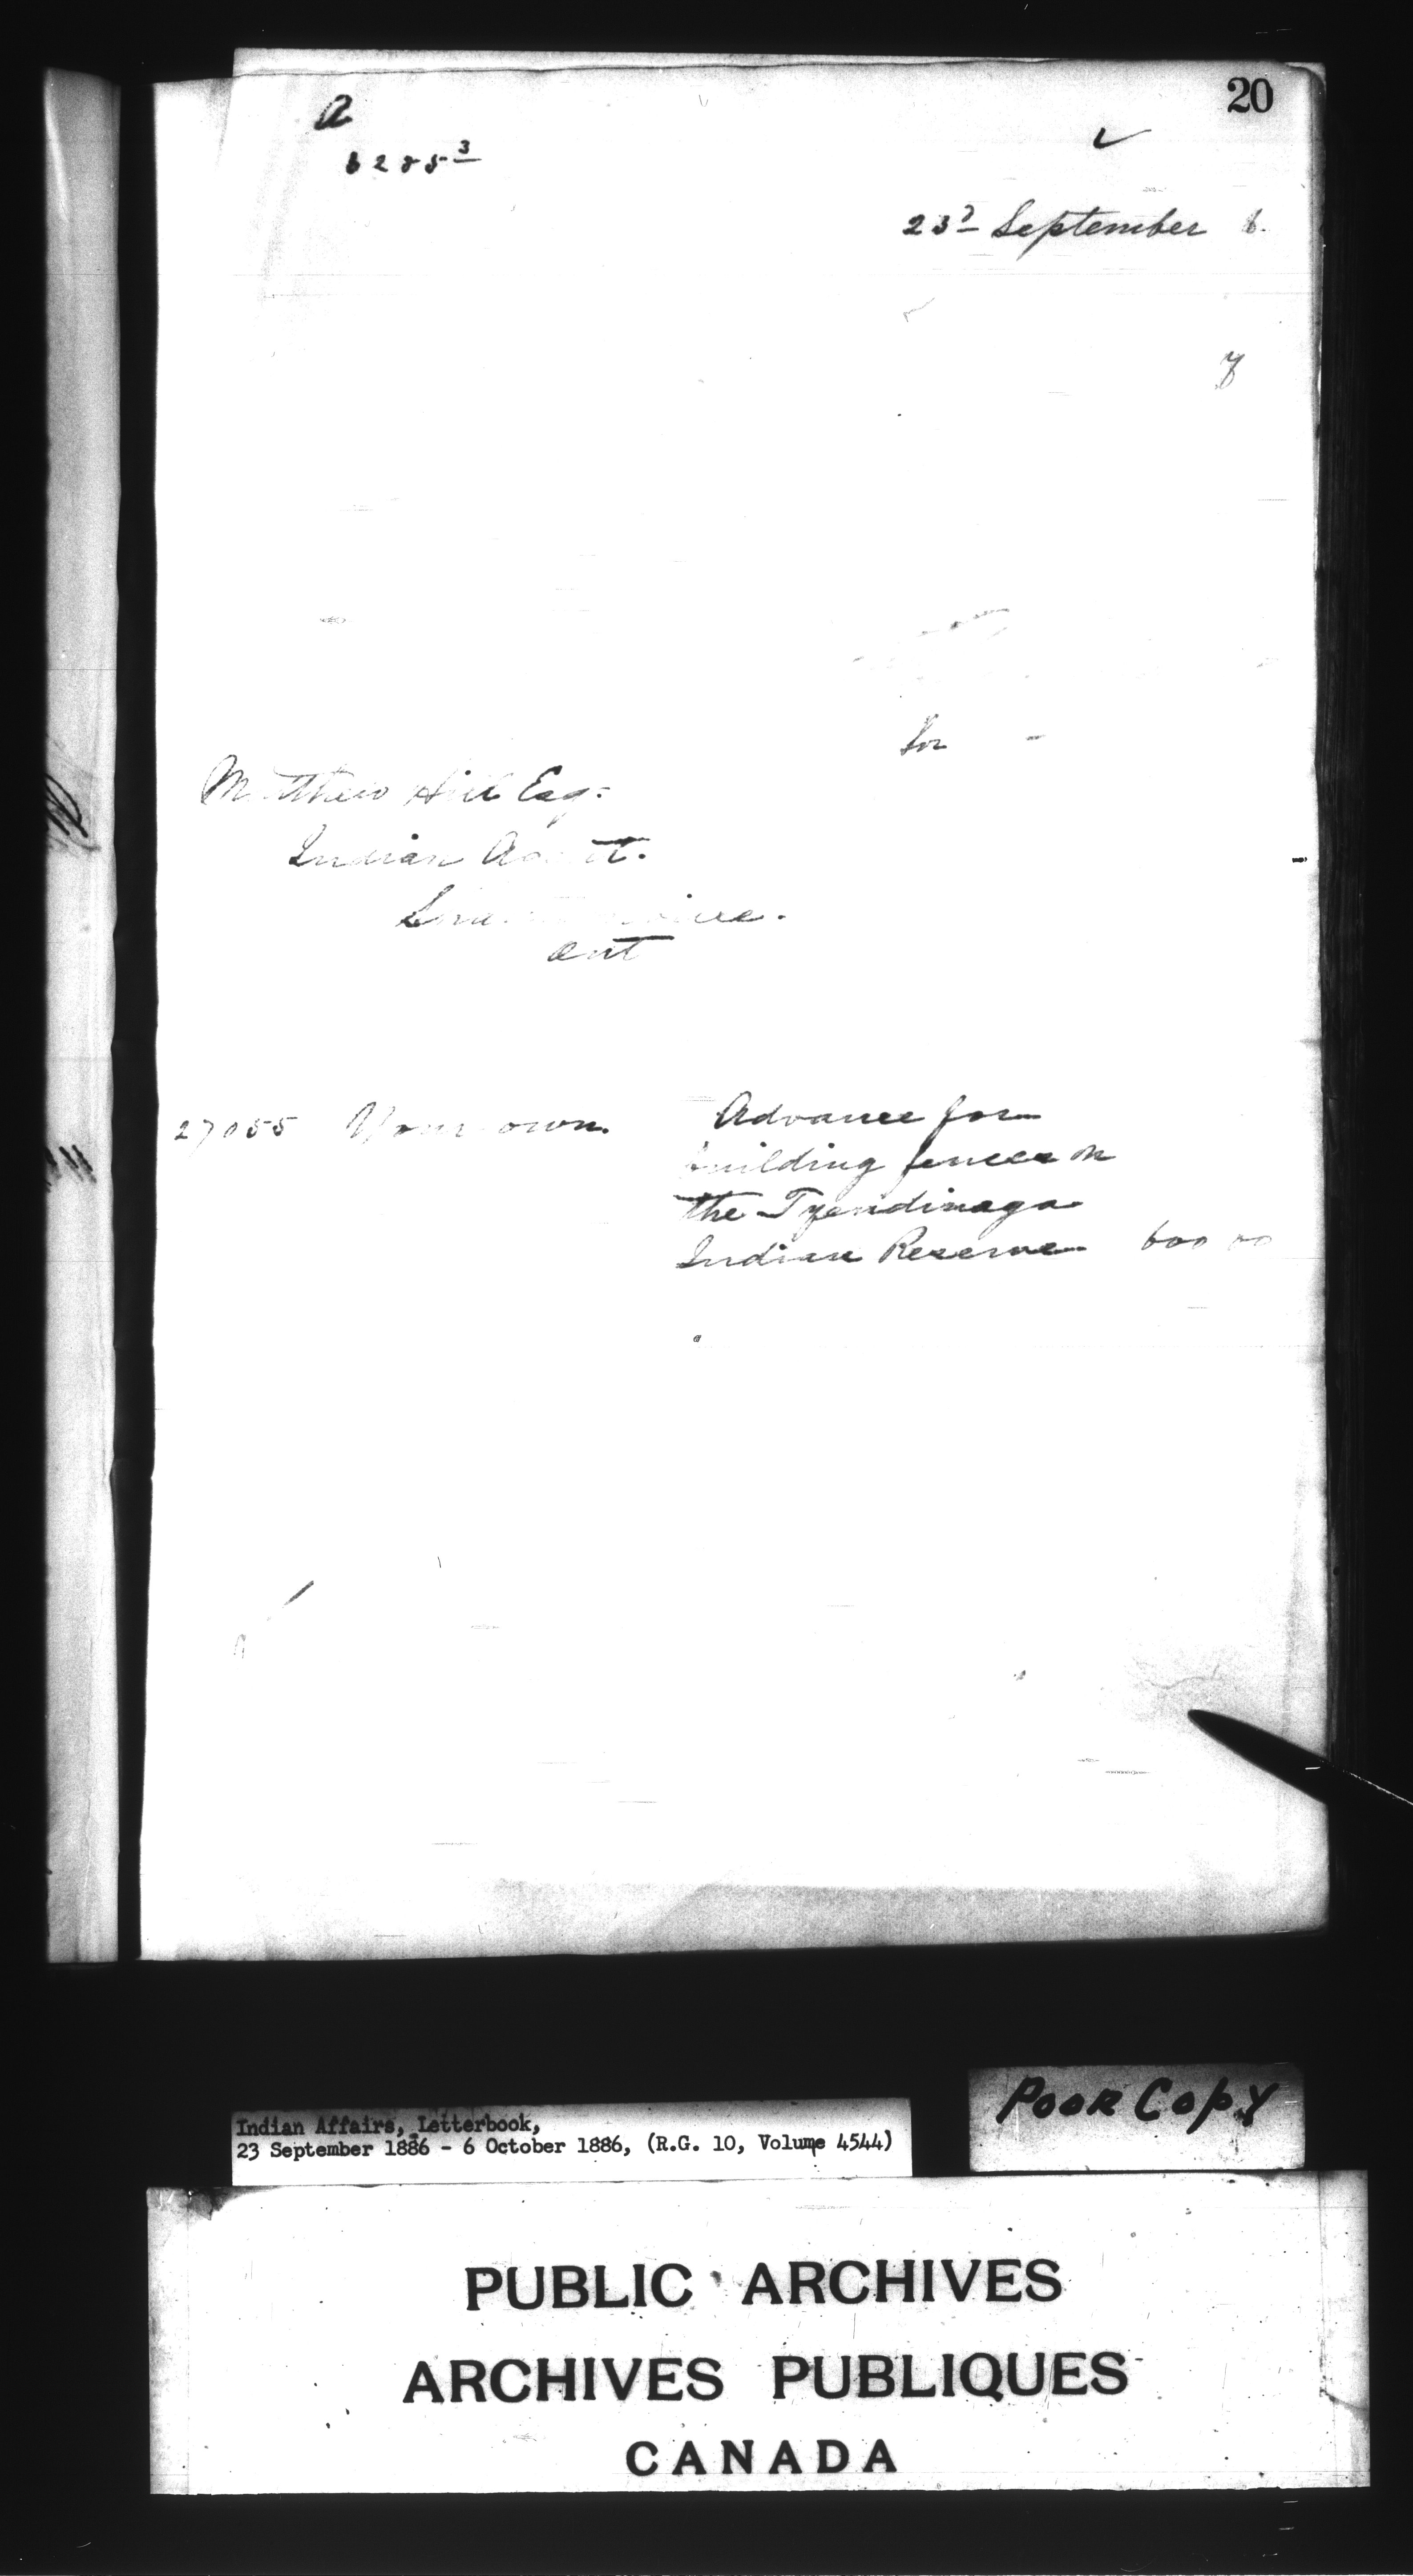 20
a
6285 3
23d September 6.
for
Matthew Hill Esq:
Indian
Ont
27055 Your own. Advance for
building fences on
the Tyendinaga
Indian Reserve 600 00
Poor Copy
Indian Affairs, Letterbook,
23 September 1886 - 6 October 1886, (R.G. 10, Volume 4544)
PUBLIC ARCHIVES
ARCHIVES PUBLIQUES
CANADA